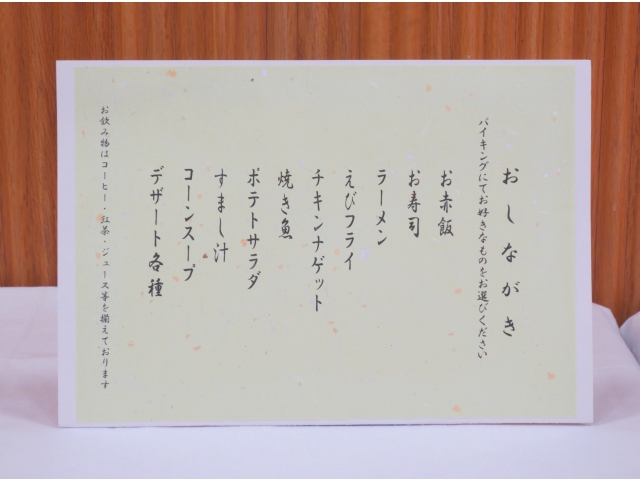 おしながき
バイキングにてお好きなものをお選びください
お赤飯
お寿司
ラーメン
えびフライ
チキンナゲット
焼き魚
ポテトサラダ
すまし汁
コーンスープ
デザート各種
お飲み物はコーヒー・紅茶・ジュース等を揃えております